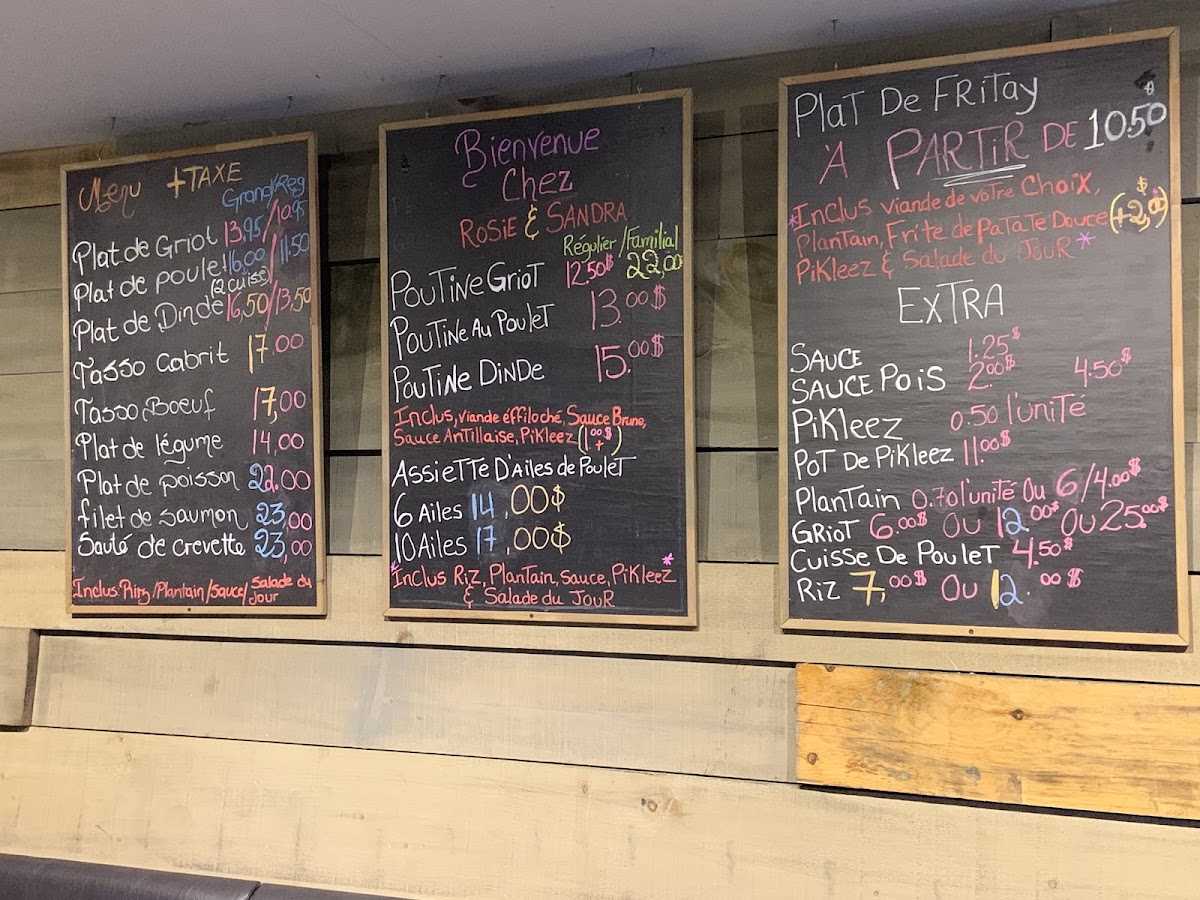 Menu +TAXE
Grand/Reg
Plat de Griot 13,95/10.95
Plat de poulet 16.00/11.50
(2 cuiss)
Plat de Dinde 16,50/13,50
Tasso Cabrit 17.00
Tasso Boeuf 17,00
Plat de légume 14,00
Plat de poisson 22.00
filet de saumon 23,00
Sauté de crevette 23,00
Inclus: Ring/Plantain/Sauce/Salade du
Jour
Bienvenue
Chez
ROSiE & SANDRA
Régulier/Familial
POUTiNE GRiOT 12.50$ 22,00
POUTiNE AU POULET 13.00$
POUTiNE DiNDE 15.00$
Inclus, viande éffiloché, Sauce Brune,
Sauce Antillaise, PiKleez (1.00$ +)
ASSiETTE D'AiLES de POULET
6 AiLES 14,00$
10 AiLES 17,00$
*Inclus Riz, Plantain, Sauce, PiKleez*
& Salade du JouR
PLaT De FRiTay
À PARTiR DE 10.50$
*Inclus viande de votre Choix,
PLanTain, Frite de PaTaTe Douce (+2,00$)
PiKleez & Salade du JouR*
EXTRA
SAUCE 1.25$
SAUCE POiS 2.00$ 4.50$
PiKLEEZ 0.50 l'unité
POT DE PiKLEEZ 11.00$
PLanTain 0.70 l'unité OU 6/4.00$
GRiOT 6.00$ OU 12.00$ OU 25.00$
CUiSSE DE POULET 4.50$
Riz 7,00$ OU 12.00$